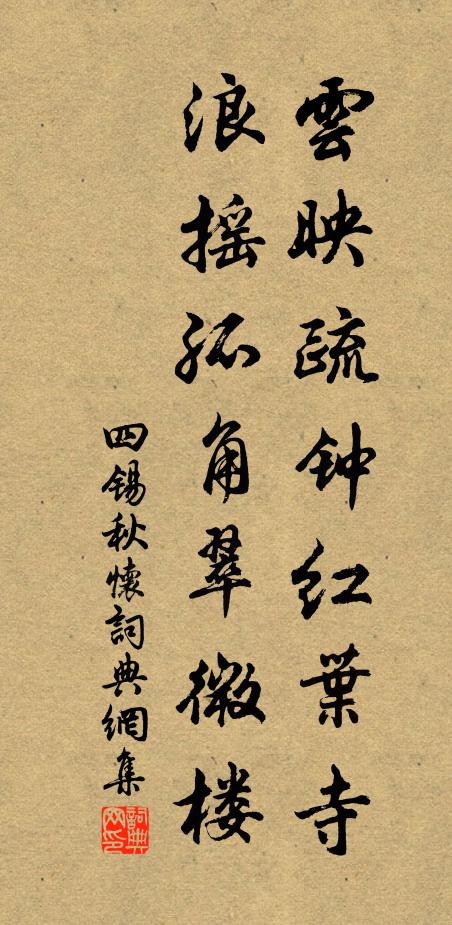 雲映疏钟红葉寺
浪摇孤角翠微楼
四锡秋懷詞典網集
詞典网印